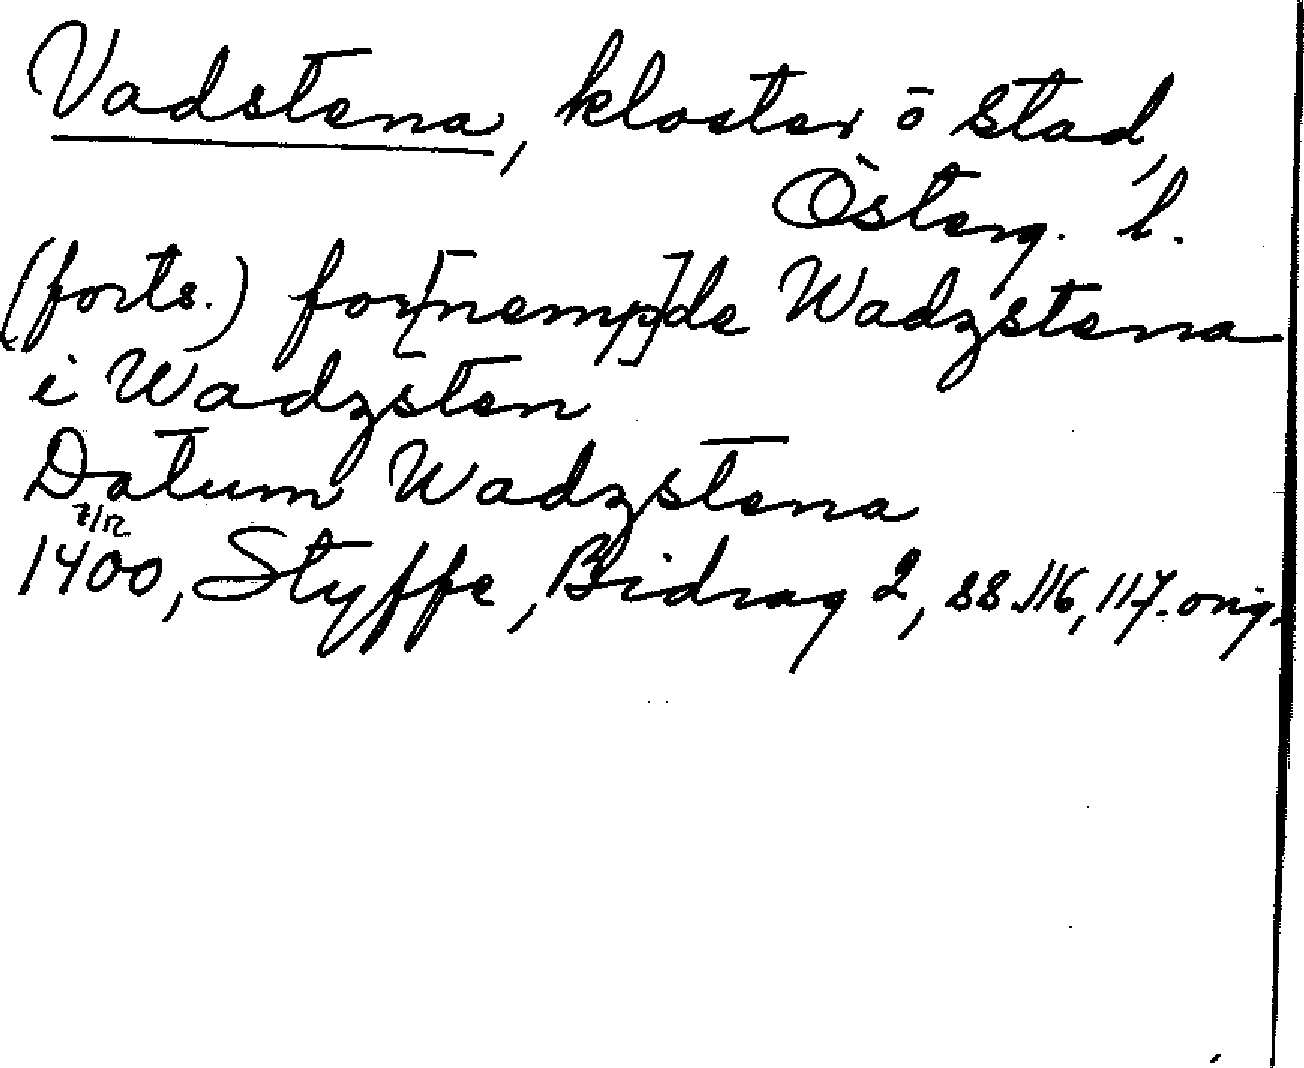 Vadstena, kloster o stad,
Österg. l.
(forts.) for[nemp]de Wadzstena
i Wadzsten
Datum Wadzstena
7/12
1400, Styffe, Bidrag 2, ss. 116, 117. orig.